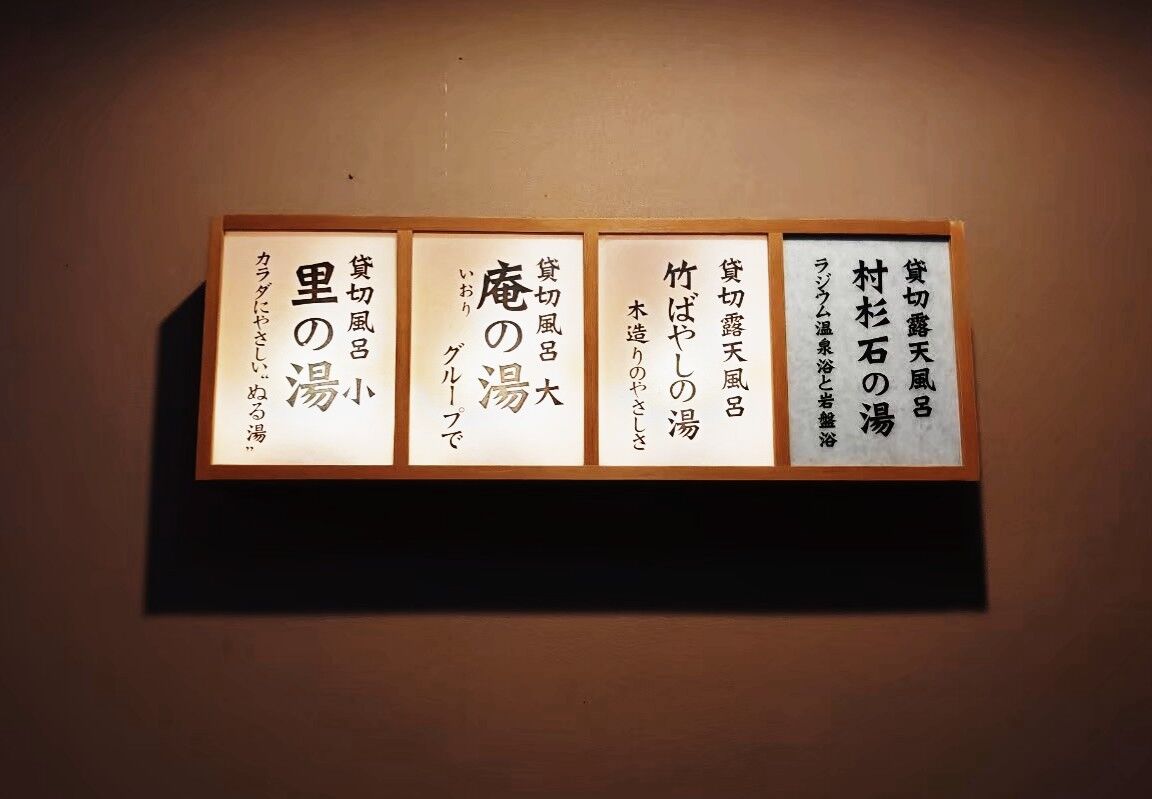 貸切露天風呂
村杉石の湯
ラジウム温泉浴と岩盤浴
貸切露天風呂
竹ばやしの湯
木造りのやさしさ
貸切風呂 大
庵の湯
いおり
グループで
貸切風呂 小
里の湯
カラダにやさしい“ぬる湯”